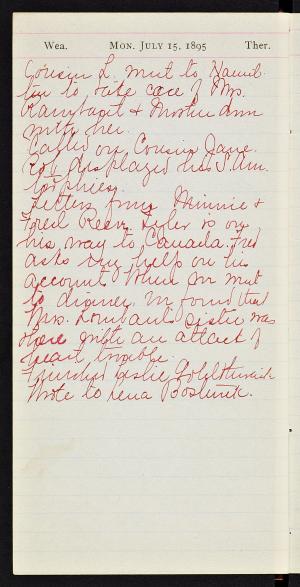 Wea. MON. JULY 15, 1895 Ther.
Cousin L. went to Hamil-
ton to take care of Mrs.
& Mother Ann
with her.
Called on Cousin Jane.
Rob displayed his S. Am.
trophies.
Letters from Minnie &
Fred Reen. is on
his way to Canada. Fred
asks my help on his
account. When we went
to dinner we found that
Mrs. Lombard's sister was
there with an attack of
heart trouble.
Finished Leslie Goldthwaite
Wrote to Lena Bostwick.